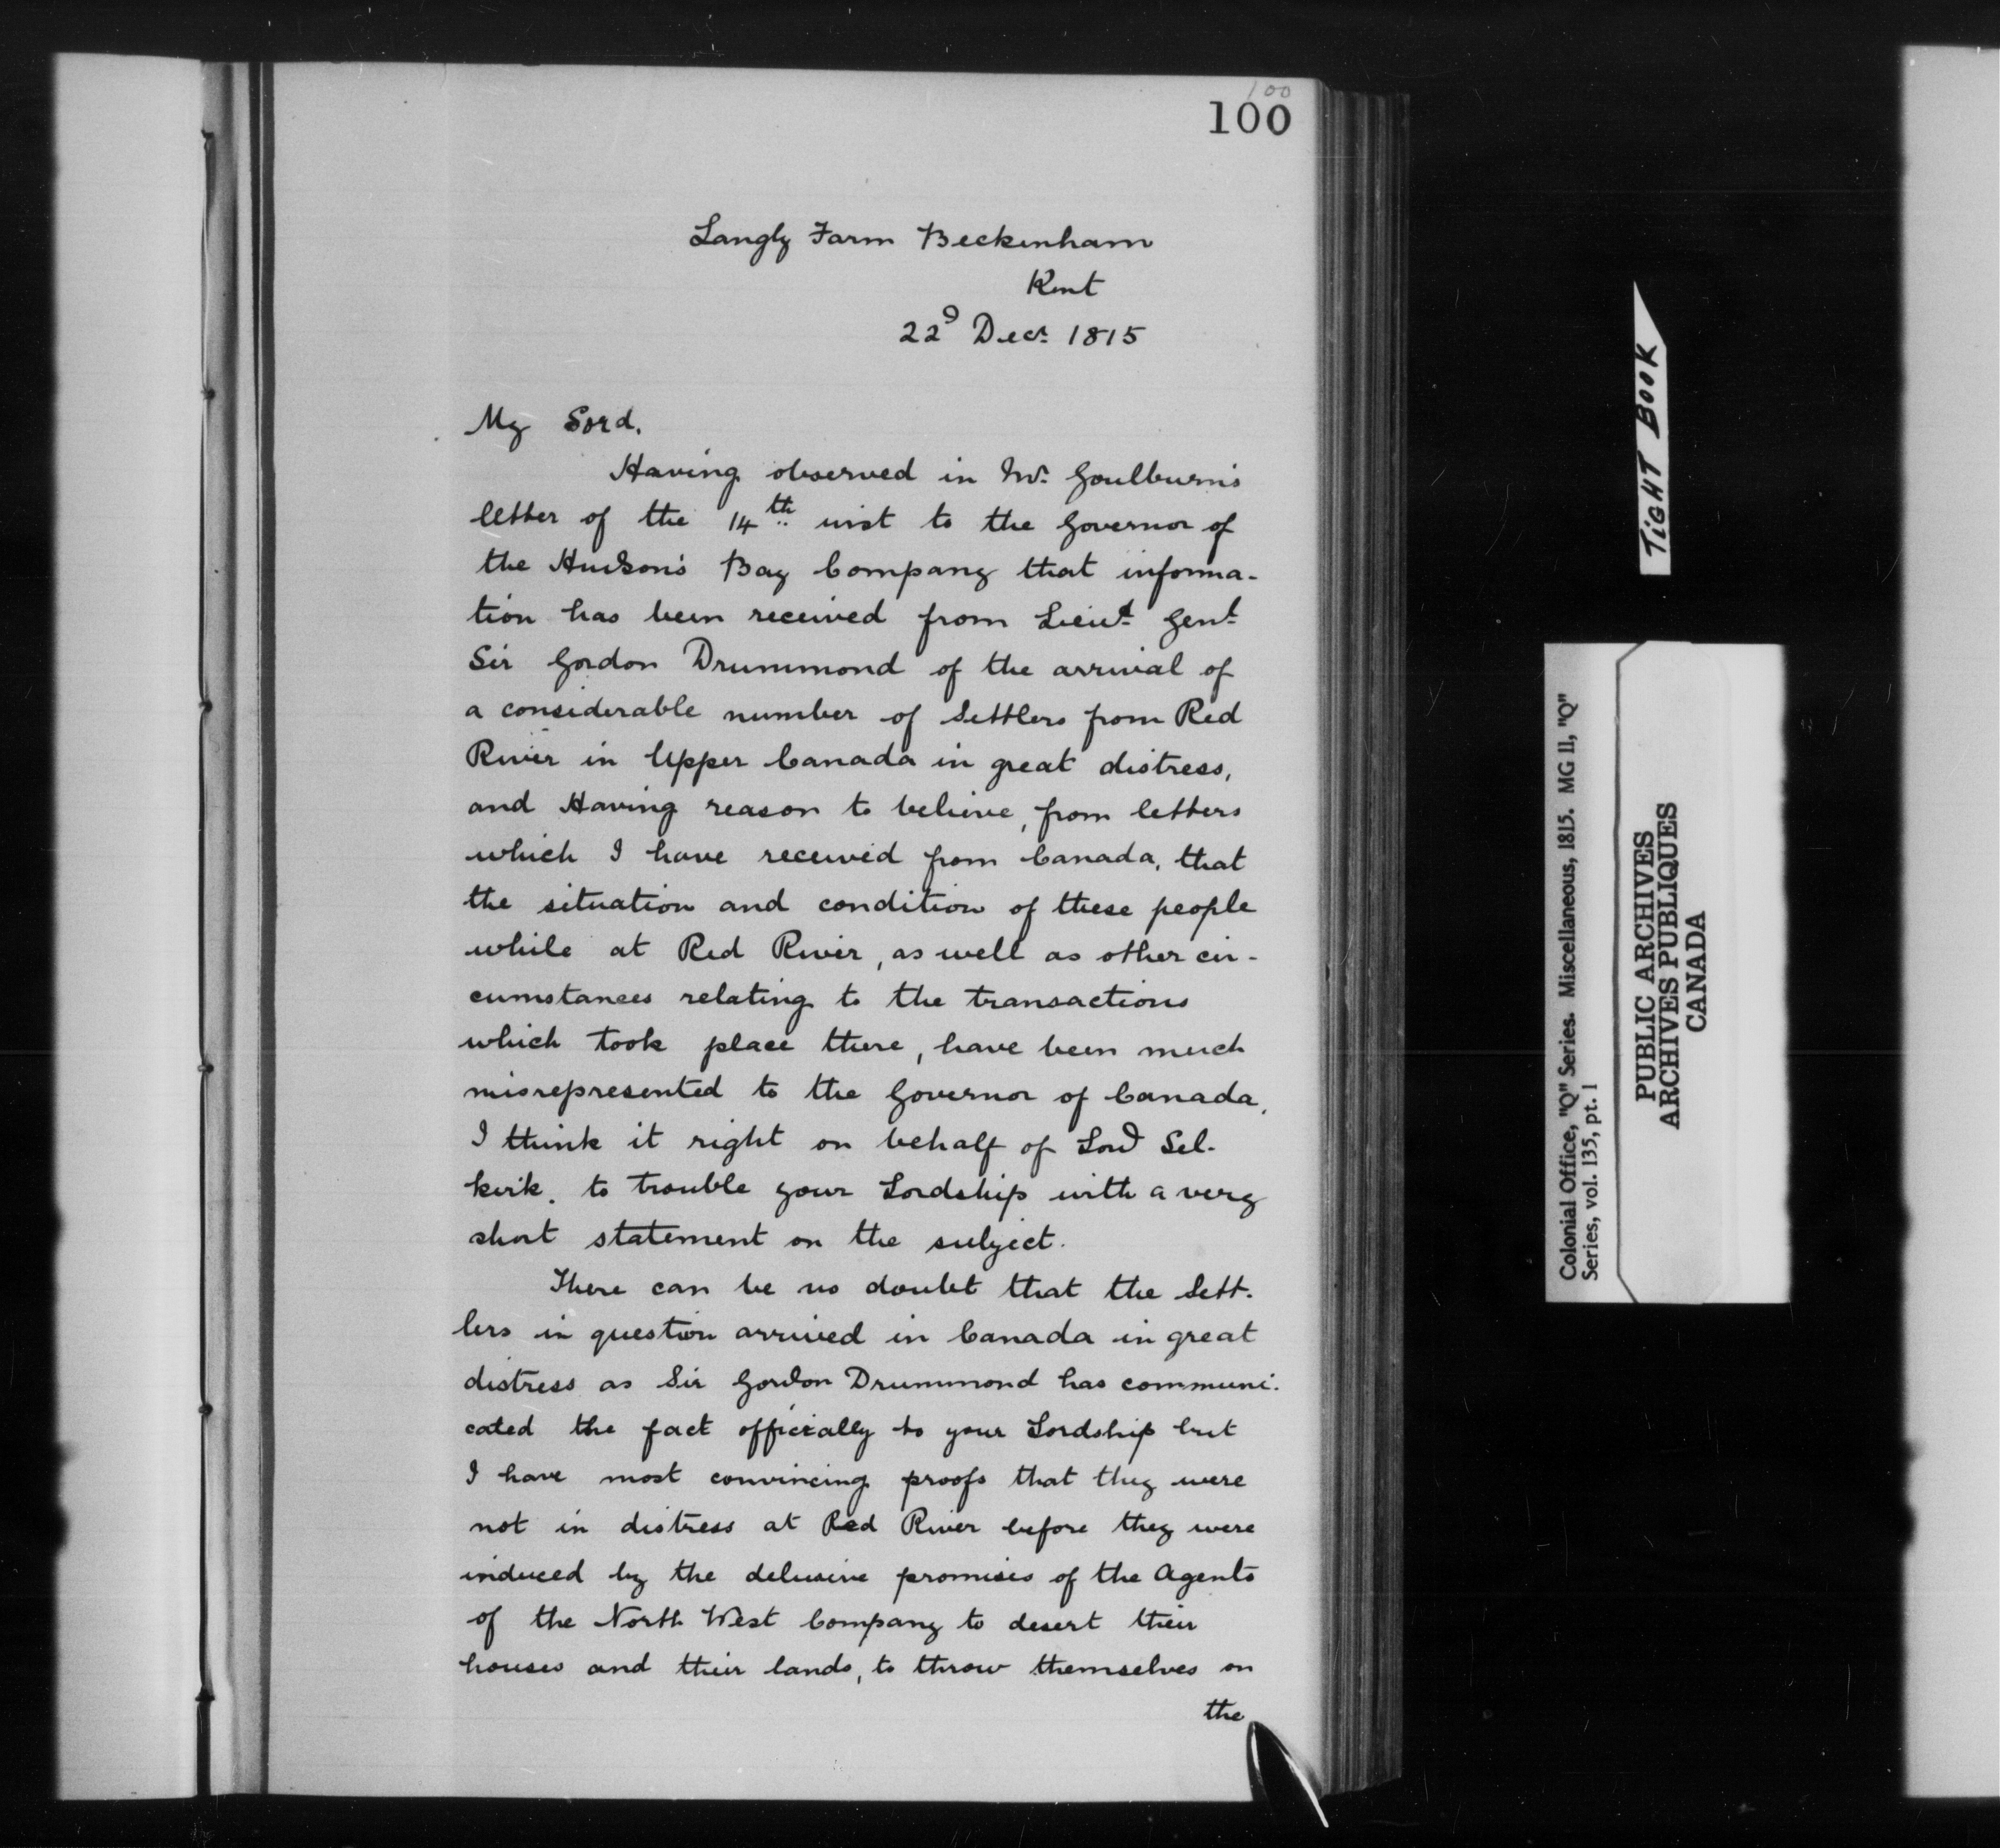 100
100
Langly Farm Beckenham
Kent
22d Decr. 1815
My Lord.
Having observed in Mr. Goulburn's
letter of the 14th inst to the Governor of
the Hudson's Bay Company that informa-
tion has been received from Lieut. Genl.
Sir Gordon Drummond of the arrival of
a considerable number of Settlers from Red
River in Upper Canada in great distress,
and Having reason to believe, from letters
which I have received from Canada, that
the situation and condition of these people
while at Red River, as well as other cir-
cumstances relating to the transactions
which took place there, have been much
misrepresented to the Governor of Canada,
I think it right on behalf of Lord Sel-
kirk. to trouble your Lordship with a very
short statement on the subject.
There can be no doubt that the Sett-
lers in question arrived in Canada in great
distress as Sir Gordon Drummond has communi-
cated the fact officially to your Lordship but
I have most convincing proofs that they were
not in distress at Red River before they were
induced by the delusive promises of the Agents
of the North West Company to desert their
houses and their lands, to throw themselves on
the
TIGHT BOOK
Colonial Office, "Q" Series. Miscellaneous, 1815. MG 11, "Q"
Series, vol. 135, pt. 1
PUBLIC ARCHIVES
ARCHIVES PUBLIQUES
CANADA